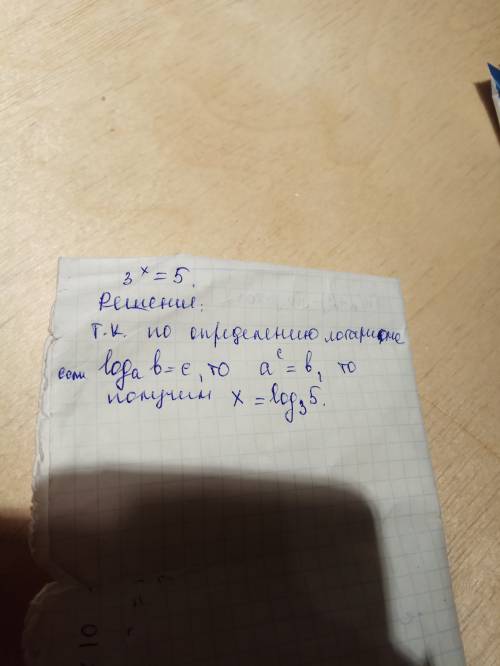 3ˣ = 5.
Решение:
Т.К. по определению логарифма
если logₐ b = c, то aᶜ = b, то
получим x = log₃ 5.
10